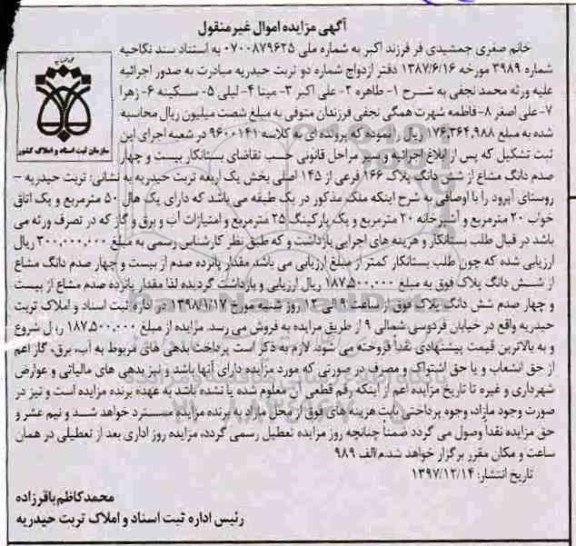 آگهی مزایده اموال غیر منقول
خانم صغری جمشیدی فر فرزند اکبر به شماره ملی ۰۷۰۰۸۷۹۶۲۵ به استناد سند نکاحیه
شماره ۳۹۸۹ مورخه ۱۳۸۷/۶/۱۶ دفتر ازدواج شماره دو تربت حیدریه مبادرت به صدور اجرائیه
علیه ورثه محمد نجفی به شرح ۱- طاهره ۲- علی اکبر ۳- مینا ۴- لیلی ۵- سکینه ۶- زهرا
۷- علی اصغر ۸- فاطمه شهرت همگی نجفی فرزندان متوفی به مبلغ شصت میلیون ریال محاسبه
شده به مبلغ ۱۷۶,۳۶۴,۹۸۸ ریال را نموده که پرونده ای به کلاسه ۹۶۰۰۱۴۱ در شعبه اجرای این
ثبت تشکیل که پس از ابلاغ اجرائیه و سیر مراحل قانونی حسب تقاضای بستانکار بیست و چهار
صدم دانگ مشاع از شش دانگ پلاک ۱۶۶ فرعی از ۱۴۵ اصلی بخش یک اربعه تربت حیدریه به نشانی: تربت حیدریه –
روستای آبرود را با اوصافی به شرح اینکه ملک مذکور در یک طبقه می باشد که دارای یک هال ۵۰ مترمربع و یک اتاق
خواب ۲۰ مترمربع و آشپزخانه ۲۰ مترمربع و یک پارکینگ ۲۵ مترمربع و امتیازات آب و برق و گاز که در تصرف ورثه می
باشد در قبال طلب بستانکار و هزینه های اجرایی بازداشت و که طبق نظر کارشناس رسمی به مبلغ ۳۰۰,۰۰۰,۰۰۰ ریال
ارزیابی شده که چون طلب بستانکار کمتر از مبلغ ارزیابی می باشد مقدار پانزده صدم از بیست و چهار صدم دانگ مشاع
از شش دانگ پلاک فوق به مبلغ ۱۸۷,۵۰۰,۰۰۰ ریال ارزیابی و بازداشت گردیده لذا مقدار پانزده صدم مشاع از بیست
و چهار صدم شش دانگ پلاک فوق از ساعت ۹ الی ۱۲ روز شنبه مورخ ۱۳۹۸/۱/۱۷ در اداره ثبت اسناد و املاک تربت
حیدریه واقع در خیابان فردوسی شمالی ۹ از طریق مزایده به فروش می رسد. مزایده از مبلغ ۱۸۷,۵۰۰,۰۰۰ ریال شروع
و به بالاترین قیمت پیشنهادی نقداً فروخته می شود. لازم به ذکر است پرداخت بدهی های مربوط به آب، برق، گاز اعم
از حق انشعاب و یا حق اشتراک و مصرف در صورتی که مورد مزایده دارای آنها باشد و نیز بدهی های مالیاتی و عوارض
شهرداری و غیره تا تاریخ مزایده اعم از اینکه رقم قطعی آن معلوم شده یا نشده باشد به عهده برنده مزایده است و نیز در
صورت وجود مازاد، وجوه پرداختی بابت هزینه های فوق از محل مازاد به برنده مزایده مسترد خواهد شد و نیم عشر و
حق مزایده نقداً وصول می گردد ضمناً چنانچه روز مزایده تعطیل رسمی گردد، مزایده روز اداری بعد از تعطیلی در همان
ساعت و مکان مقرر برگزار خواهد شد.م/الف ۹۸۹
تاریخ انتشار: ۱۳۹۷/۱۲/۱۴
محمد کاظم باقرزاده
رئیس اداره ثبت اسناد و املاک تربت حیدریه
سازمان ثبت اسناد و املاک کشور